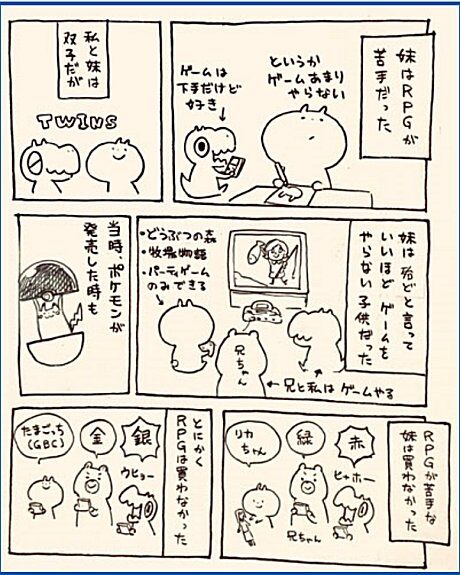 妹はRPGが
苦手だった
というか
ゲームあまり
やらない
ゲームは
下手だけど
好き
私と妹は
双子だが
TWINS
妹は殆どと言って
いいほどゲームを
やらない子供だった
・どうぶつの森
・牧場物語
・パーティゲーム
のみできる
兄ちゃん
兄と私はゲームやる
当時、ポケモンが
発売した時も
RPGが苦手な
妹は買わなかった
赤
緑
リカ
ちゃん
ヒャホー
兄ちゃん
とにかく
RPGは買わなかった
銀
金
たまごっち
(GBC)
ウヒョー